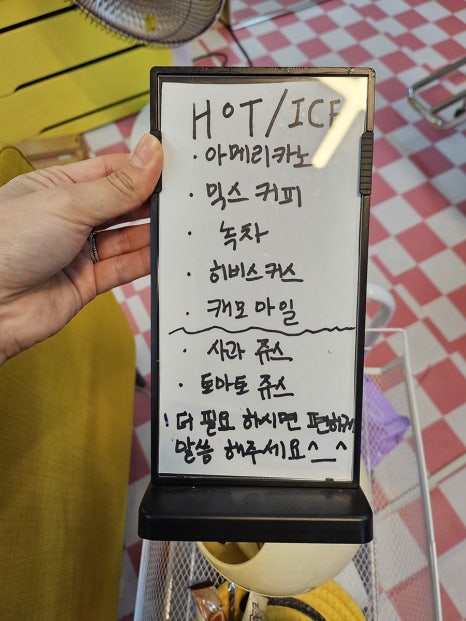 HOT/ICE
· 아메리카노
· 믹스 커피
· 녹차
· 히비스커스
· 캐모마일
· 사과 쥬스
· 토마토 쥬스
! 더 필요 하시면 편하게
말씀 해주세요^_^